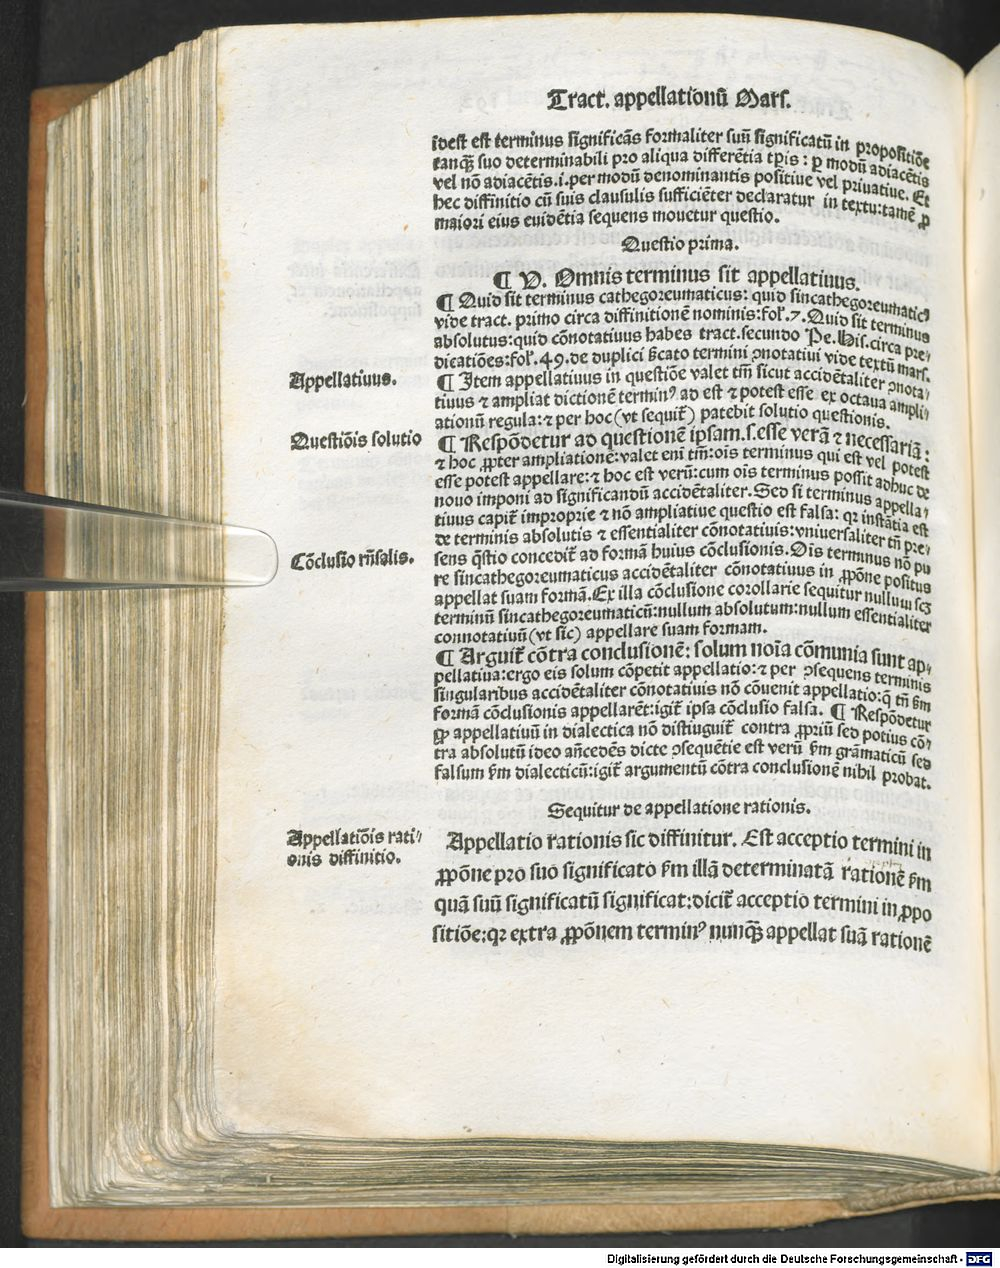 Tract. appellationū Mars.
idest est terminus significās formaliter suū significatū in propositiōe
tanq̄ suo determinabili pro aliqua differētia tp̄is : ꝑ modū adiacētis
vel nō adiacētis.i.per modū denominantis positiue vel priuatiue. Et
hec diffinitio cū suis clausulis sufficiēter declaratur in textu:tamē ꝓ
maiori eius euidētia sequens mouetur questio.
Questio prima.
¶ V. Omnis terminus sit appellatiuus.
¶ Quid sit terminus cathegoreumaticus: quid sincathegoreumaticꝰ
vide tract. primo circa diffinitionē nominis:fol'.7.Quid sit terminus
absolutus:quid cōnotatiuus habes tract.secundo Pe.His.circa pre⸗
dicatiōes:fol'.49.de duplici ſcato termini ꝯnotatiui vide textū mars.
Appellatiuus.
¶ Item appellatiuus in questiōe valet tm̄ sicut accidētaliter ꝯnota⸗
tiuus ⁊ ampliat dictionē terminꝰ ad est ⁊ potest esse ex octaua ampli⸗
ationū regula:⁊ per hoc (vt sequit̄) patebit solutio questionis.
Questiōis solutio
¶ Respōdetur ad questionē ipsam.s.esse verā ⁊ necessariā :
⁊ hoc ꝓpter ampliationē:valet eni tm̄:ois terminus qui est vel potest
esse potest appellare:⁊ hoc est verū:cum ois terminus possit adhuc de
nouo imponi ad significandū accidētaliter.Sed si terminus appella⸗
tiuus capit̄ improprie ⁊ nō ampliatiue questio est falsa: qꝛ instātia est
de terminis absolutis ⁊ essentialiter cōnotatiuis:vniuersaliter tn̄ pre⸗
Cōclusio rn̄salis.
sens q̄stio concedit̄ ad formā huius cōclusionis. Ois terminus nō pu
re sincathegoreumaticus accidētaliter cōnotatiuus in ꝓpōne positus
appellat suam formā.Ex illa cōclusione corollarie sequitur nullum scꝫ
terminū sincathegoreumaticū:nullum absolutum:nullum essentialiter
connotatiuū(vt sic) appellare suam formam.
¶ Arguit̄ cōtra conclusionē: solum noīa cōmunia sunt ap⸗
pellatiua:ergo eis solum cōpetit appellatio:⁊ per ꝯsequens terminis
singularibus accidētaliter cōnotatiuis nō cōuenit appellatio:q̄ tn̄ ẜm
formā cōclusionis appellarēt:igit̄ ipsa cōclusio falsa. ¶ Respōdetur
ꝙ appellatiuū in dialectica nō distiuguit̄ contra ꝓpriū sed potius cō⸗
tra absolutū ideo an̄cedēs dicte ꝯsequētie est verū ẜm grāmaticū sed
falsum ẜm dialecticū:igit̄ argumentū cōtra conclusionē nihil probat.
Sequitur de appellatione rationis.
Appellatiōis rati⸗
onis diffinitio.
Appellatio rationis sic diffinitur. Est acceptio termini in
ꝓpōne pro suo significato ẜm illā determinatā rationē ẜm
quā suū significatū significat:dicit̄ acceptio termini in ꝓpo
sitiōe:qꝛ extra ꝓpōnem terminꝰ nunq̄ appellat suā rationē
Digitalisierung gefördert durch die Deutsche Forschungsgemeinschaft - DFG